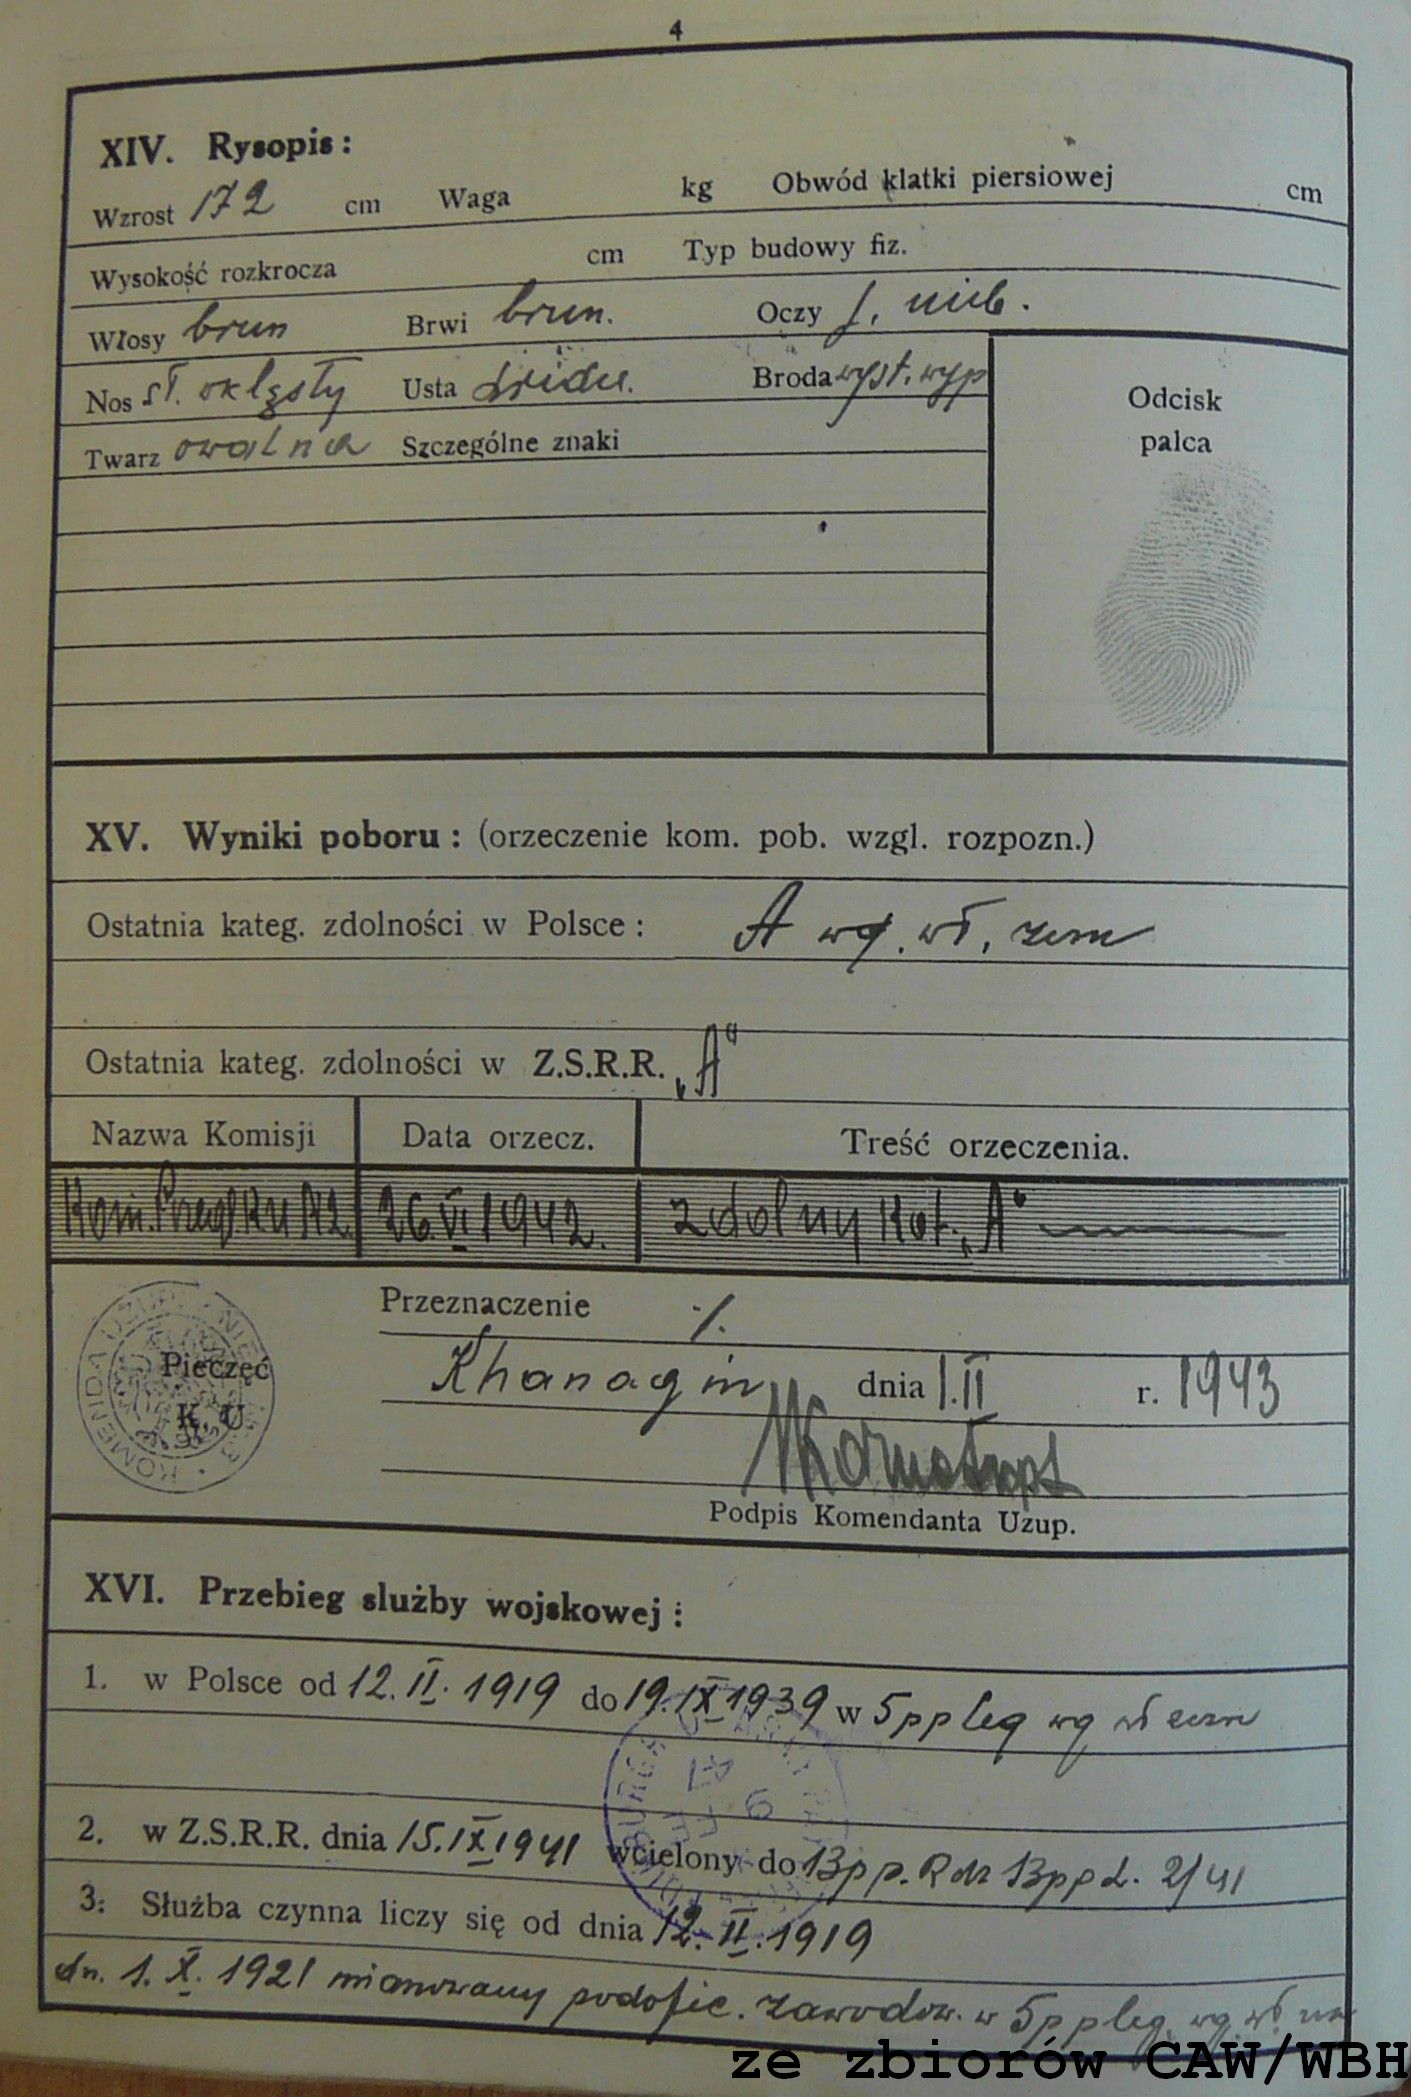 4
XIV. Rysopis:
Wzrost 172 cm Waga kg Obwód klatki piersiowej cm
Wysokość rozkrocza cm Typ budowy fiz.
Włosy brun Brwi brun. Oczy j. nieb.
Nos śr. okląsły Usta średn. Broda wyst. wyp
Twarz owalna Szczególne znaki
Odcisk
palca
XV. Wyniki poboru: (orzeczenie kom. pob. wzgl. rozpozn.)
Ostatnia kateg. zdolności w Polsce: A wg. wł. zezn
Ostatnia kateg. zdolności w Z.S.R.R. „A"
Nazwa Komisji Data orzecz. Treść orzeczenia.
Kom. Przegl. 26.VI.1942. zdolny kat. „A"
Przeznaczenie ./.
Pieczęć
K. U.
Khanaqin dnia 1.II r. 1943
Podpis Komendanta Uzup.
XVI. Przebieg służby wojskowej:
1. w Polsce od 12.II.1919 do 19.IX1939 w 5pp leg wg wł zezn
2. w Z.S.R.R. dnia 15.IX1941 wcielony do 13pp. Rdz 13pp L. 2/41
3. Służba czynna liczy się od dnia 12.II.1919
dn. 1.X.1921 mianowany podofic. zawodow. w 5pp leg. wg. wł.
ze zbiorów CAW/WBH